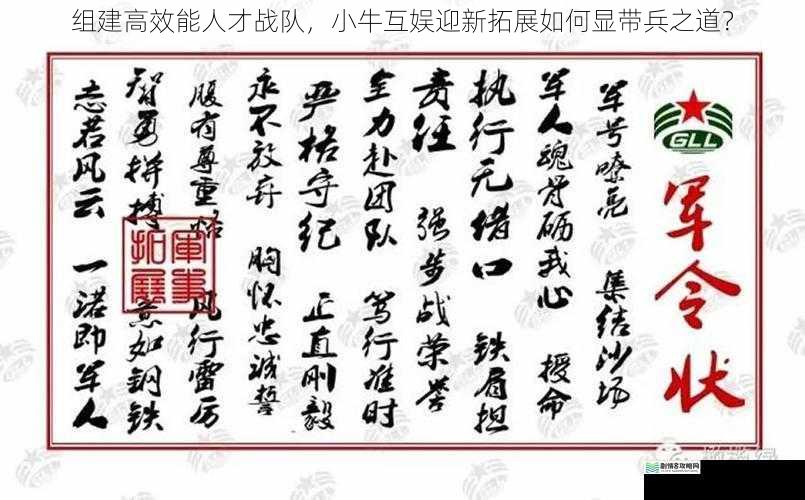 组建高效能人才战队，小牛互娱迎新拓展如何显带兵之道？
GLL
军令状
军号嘹亮 集结沙场
军人魂骨砺我心 授命
执行无借口 铁肩担
责任 强步战荣誉
全力赴团队 笃行准时
严格守纪 正直刚毅
永不放弃 胸怀忠诚誓
服有尊重恪 风行雷厉
智勇拼搏 意如钢铁
志若风云 一诺即军人
军事拓展
剧情名攻略网